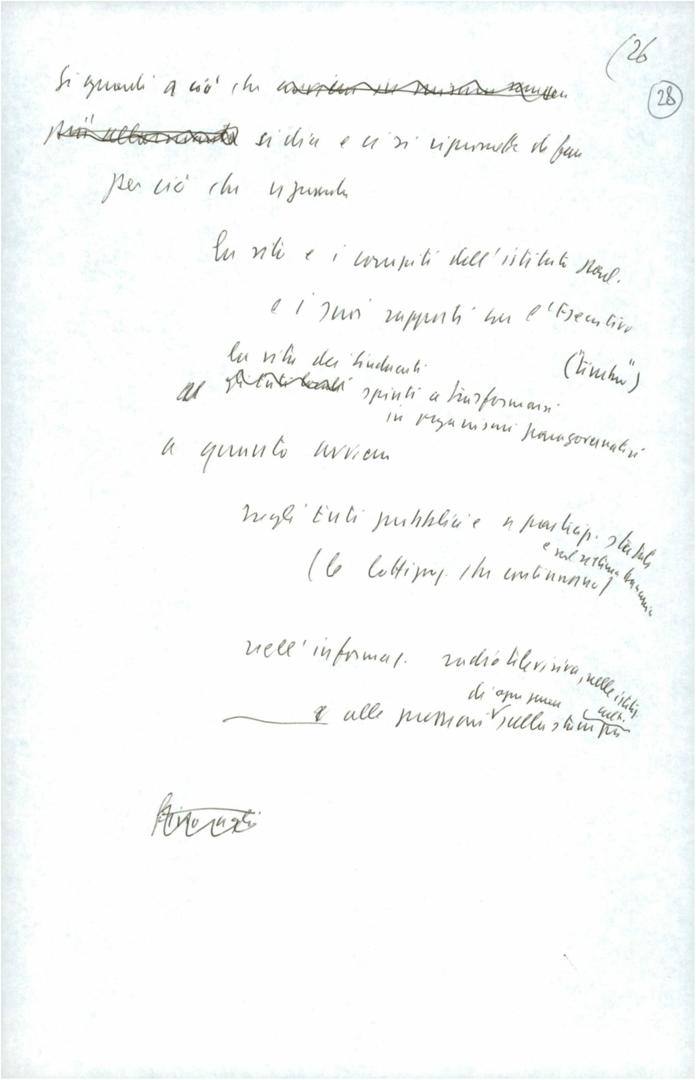 (26
28
Si guardi a ciò che
si dice e ci si ripromette di fare
per ciò che riguarda
la vita e i compiti dell'istituto
e i suoi rapporti con l'Esecutivo
la vita dei sindacati
spinti a trasformarsi
in organismi paragovernativi
a quanto avviene
negli Enti pubblici e a partecip. statale
e nel sistema bancario
(le lottizzaz. che continuano)
nell'informaz. radiotelevisiva, nelle istituz.
cult.
di ogni genere
e alle pressioni sulla stampa